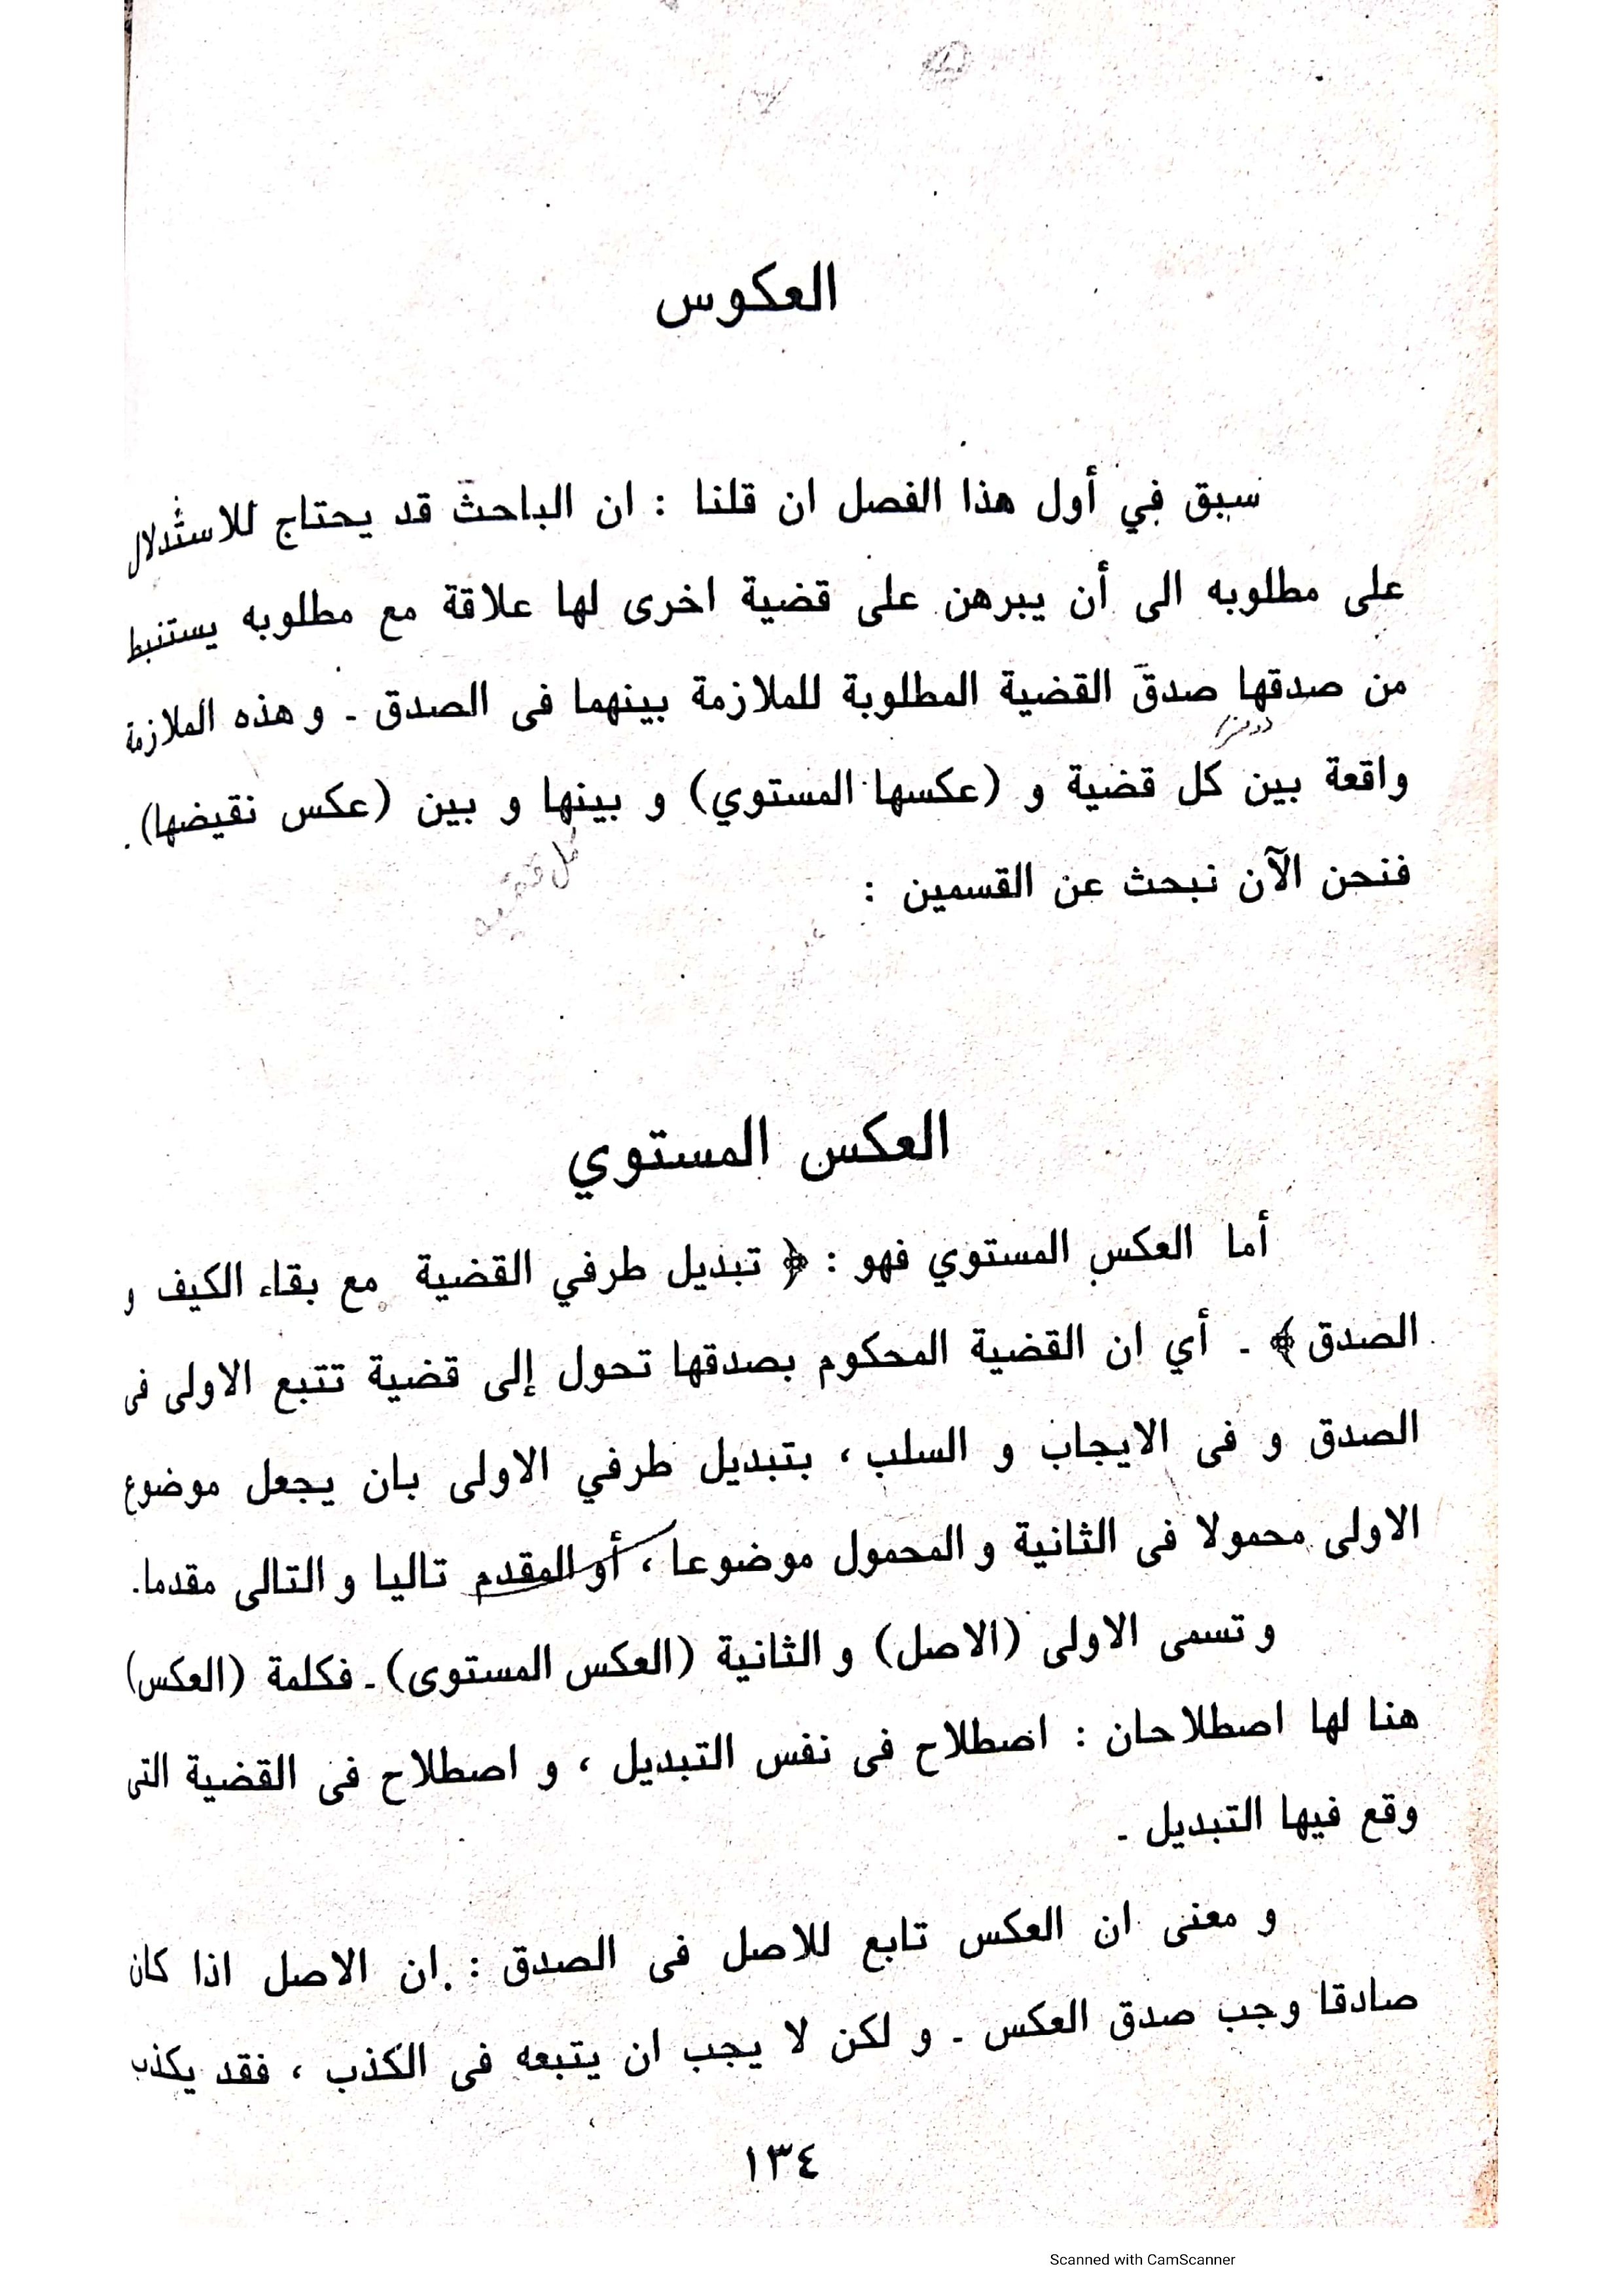 العكوس
سبق في أول هذا الفصل ان قلنا : ان الباحث قد يحتاج للاستدلال
على مطلوبه الى أن يبرهن على قضية اخرى لها علاقة مع مطلوبه يستنبط
من صدقها صدقَ القضية المطلوبة للملازمة بينهما فى الصدق ـ و هذه الملازمة
واقعة بين كل قضية و (عكسها المستوي) و بينها و بين (عكس نقيضها) .
فنحن الآن نبحث عن القسمين :
العكس المستوي
أما العكس المستوي فهو : ﴿ تبديل طرفي القضية مع بقاء الكيف و
الصدق ﴾ ـ أي ان القضية المحكوم بصدقها تحول إلى قضية تتبع الاولى فى
الصدق و فى الايجاب و السلب ، بتبديل طرفي الاولى بان يجعل موضوع
الاولى محمولا فى الثانية و المحمول موضوعا ، أو المقدم تاليا و التالى مقدما.
و تسمى الاولى (الاصل) و الثانية (العكس المستوى) ـ فكلمة (العكس)
هنا لها اصطلاحان : اصطلاح فى نفس التبديل ، و اصطلاح فى القضية التى
وقع فيها التبديل ـ
و معنى ان العكس تابع للاصل فى الصدق : ان الاصل اذا كان
صادقا وجب صدق العكس ـ و لكن لا يجب ان يتبعه فى الكذب ، فقد يكذب
١٣٤
Scanned with CamScanner